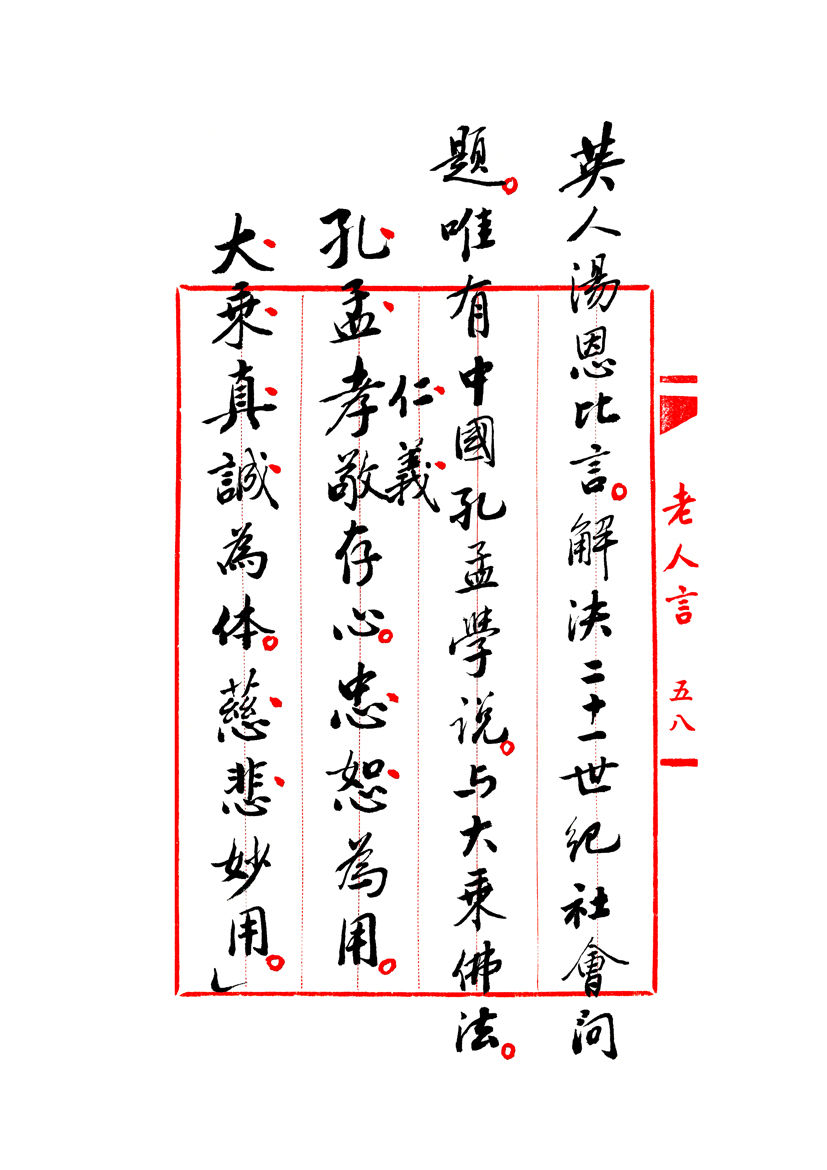 英人湯恩比言。解決二十一世紀社會问
題。唯有中國孔孟學说。与大乘佛法。
仁義
孔孟孝敬存心。忠恕為用。
大乘真誠為体。慈悲妙用。」
老人言 五八